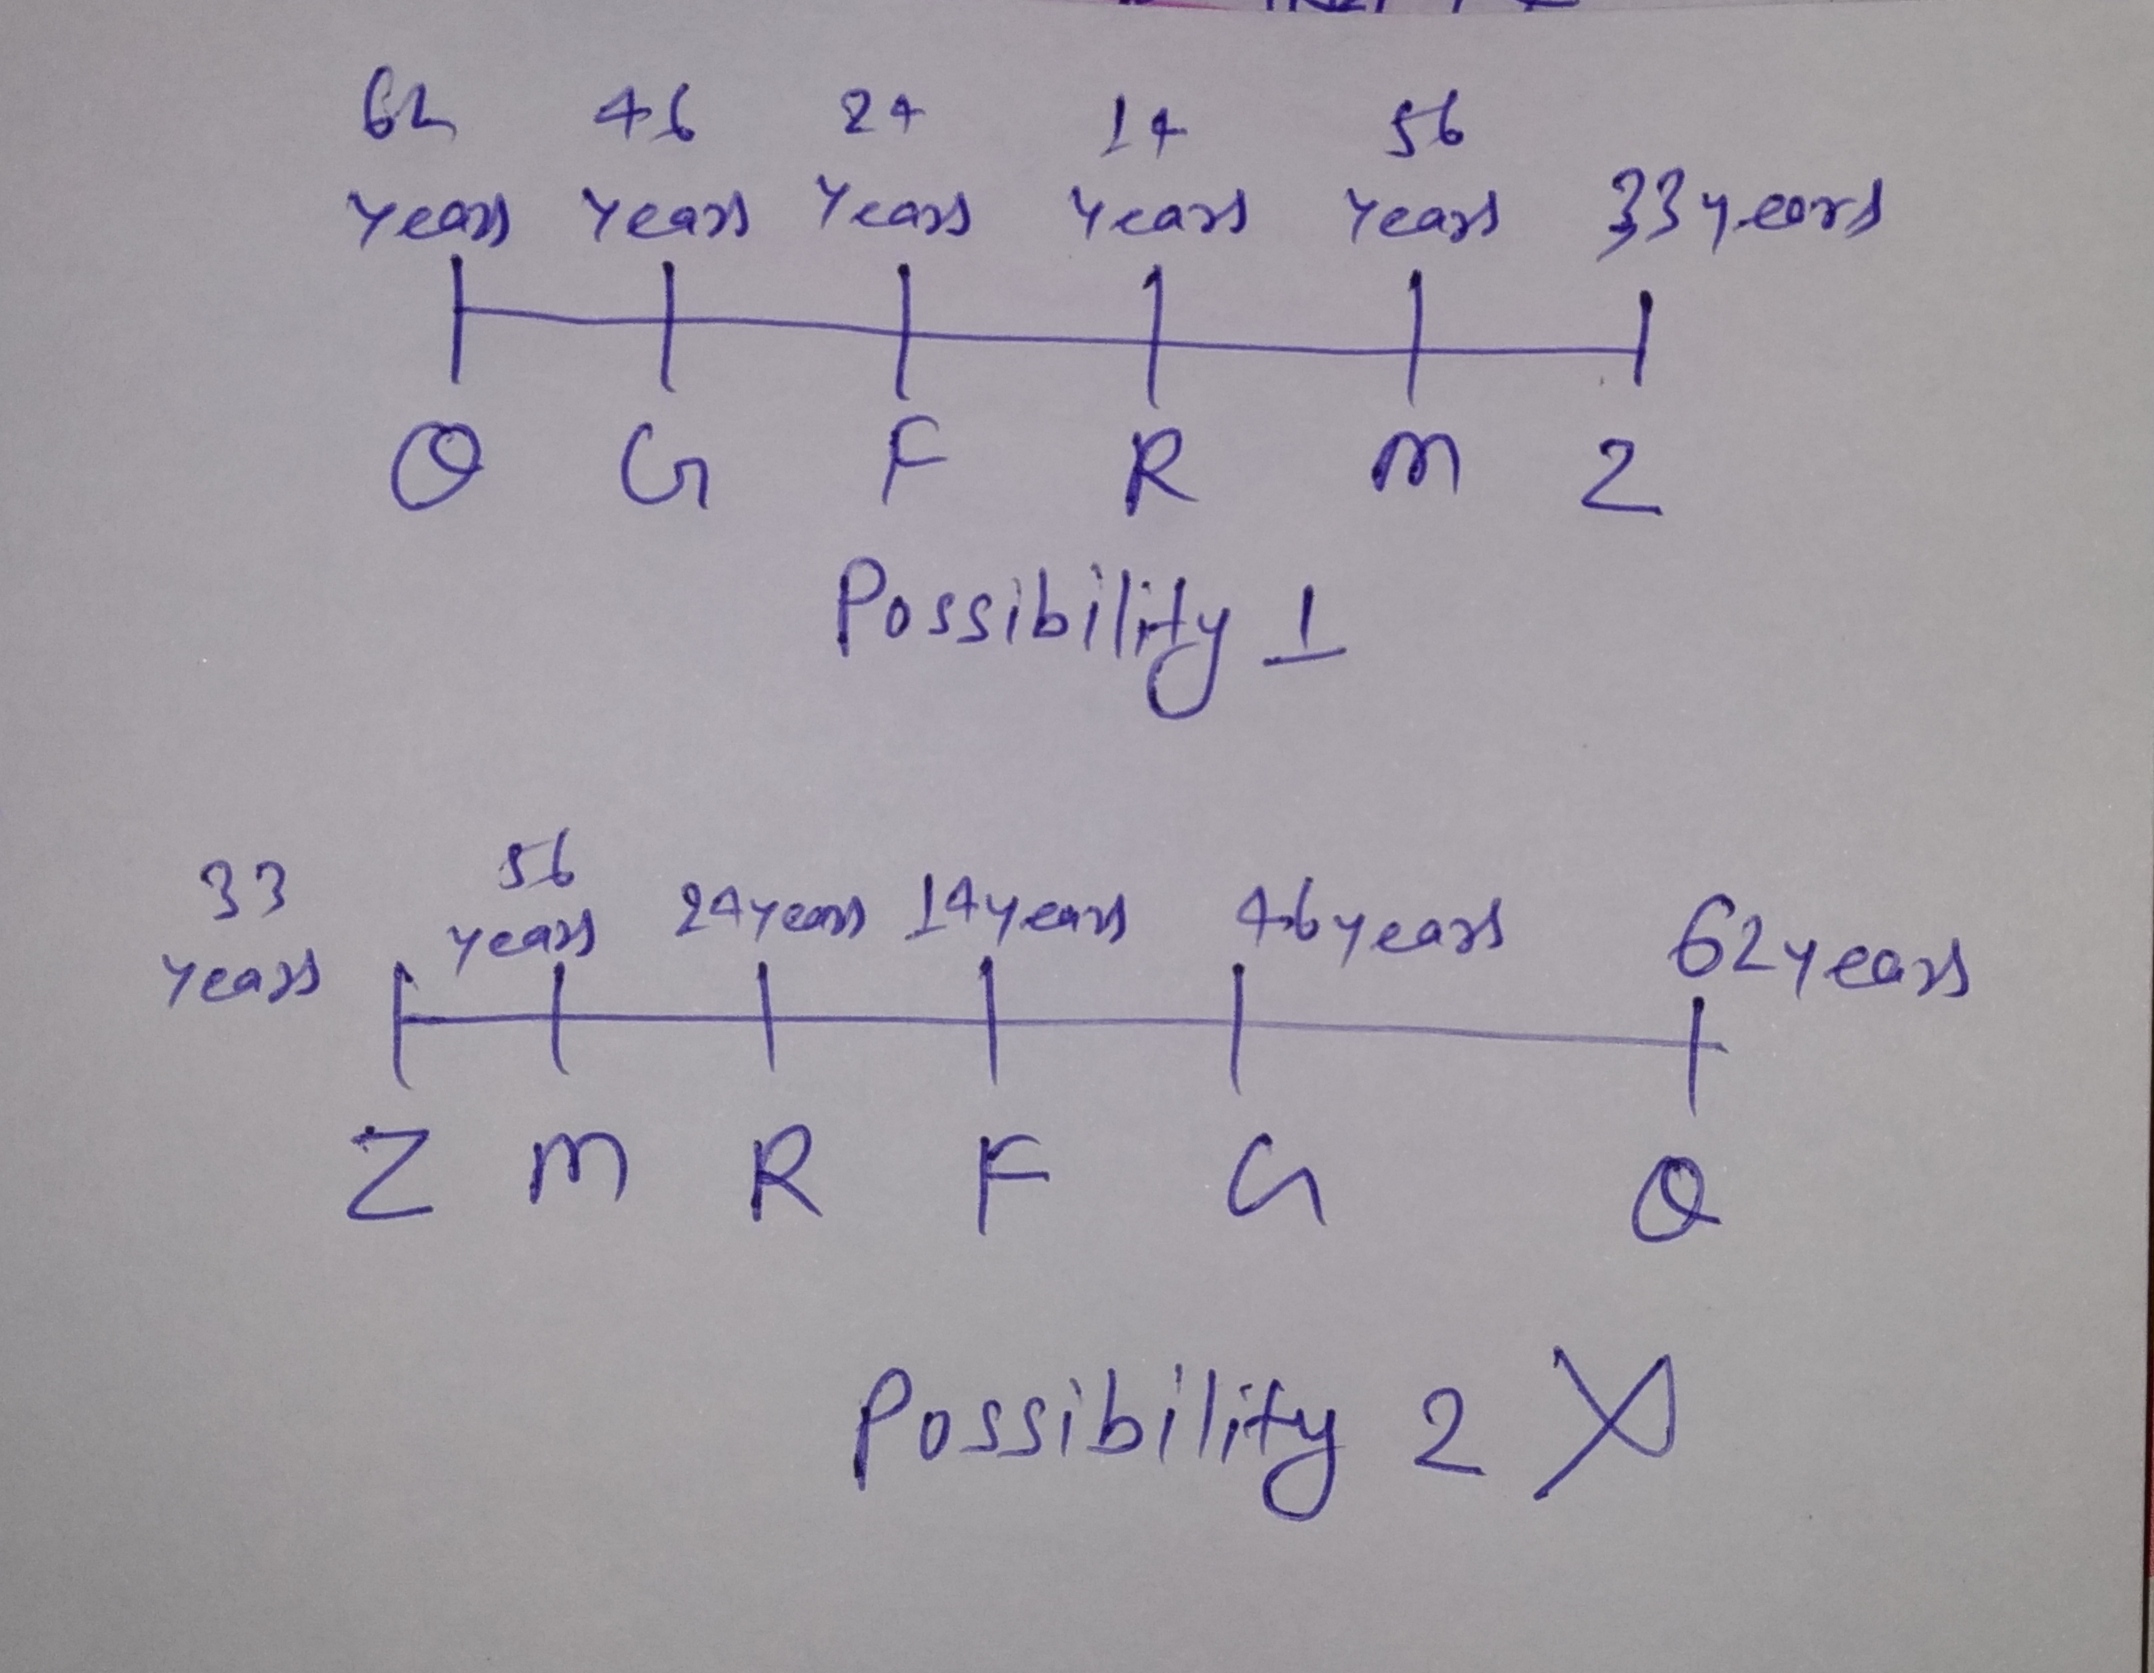 62 46 24 14 56
years years years years years 33 years
Q G F R M Z
Possibility 1
33 56
years years 24 years 14 years 46 years 62 years
Z M R F G Q
Possibility 2 X